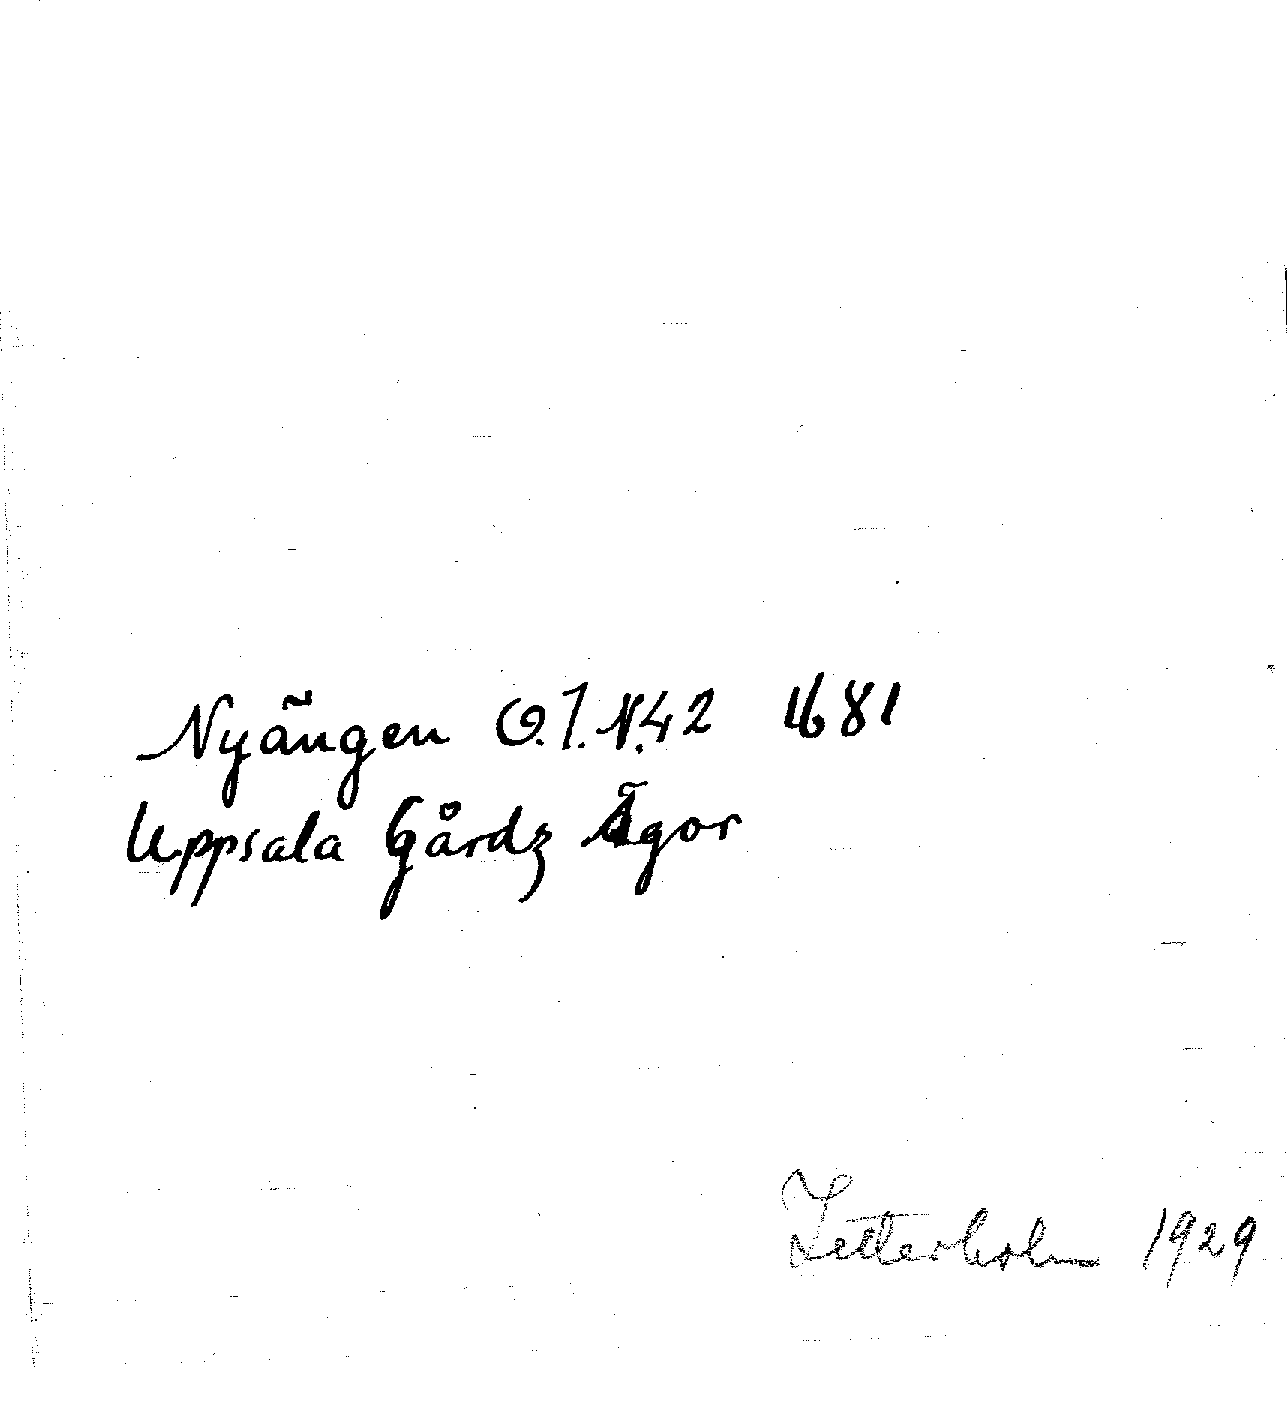 Nyängen O.7.N.42 1681
Uppsala Gårdz Ägor
Zetterholm 1929